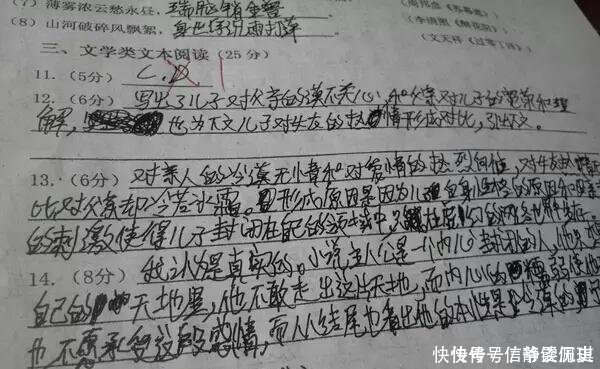 (7) 薄雾浓云愁永昼,瑞脑销金兽
(周邦彦《苏幕遮》)
(8) 山河破碎风飘絮,身世浮沉雨打萍
(李清照《醉花阴》)
(文天祥《过零丁洋》)
三、文学类文本阅读(25分)
11. (5分) C.D
12. (6分) 写出了儿子对父亲的漠不关心,和父亲对儿子的宽荣和理
解,也为下文儿子对失友的热情形成对比,引出下文。
13. (6分) 对亲人的冷漠无情和对爱情的热烈
比对父亲却冷若冰霜。形成原因是因为儿子自身性格的原因和母亲
的刺激使得儿子封闭在自己的
14. (8分) 我认为是真实的。小说主人公是一个内心封闭的人,他
自己的天地里,他不敢走出这片天地,而内心的懦弱使他
也不愿承受这段感情。而从结尾也看出他的本性是
快传号/信静缓仍琪